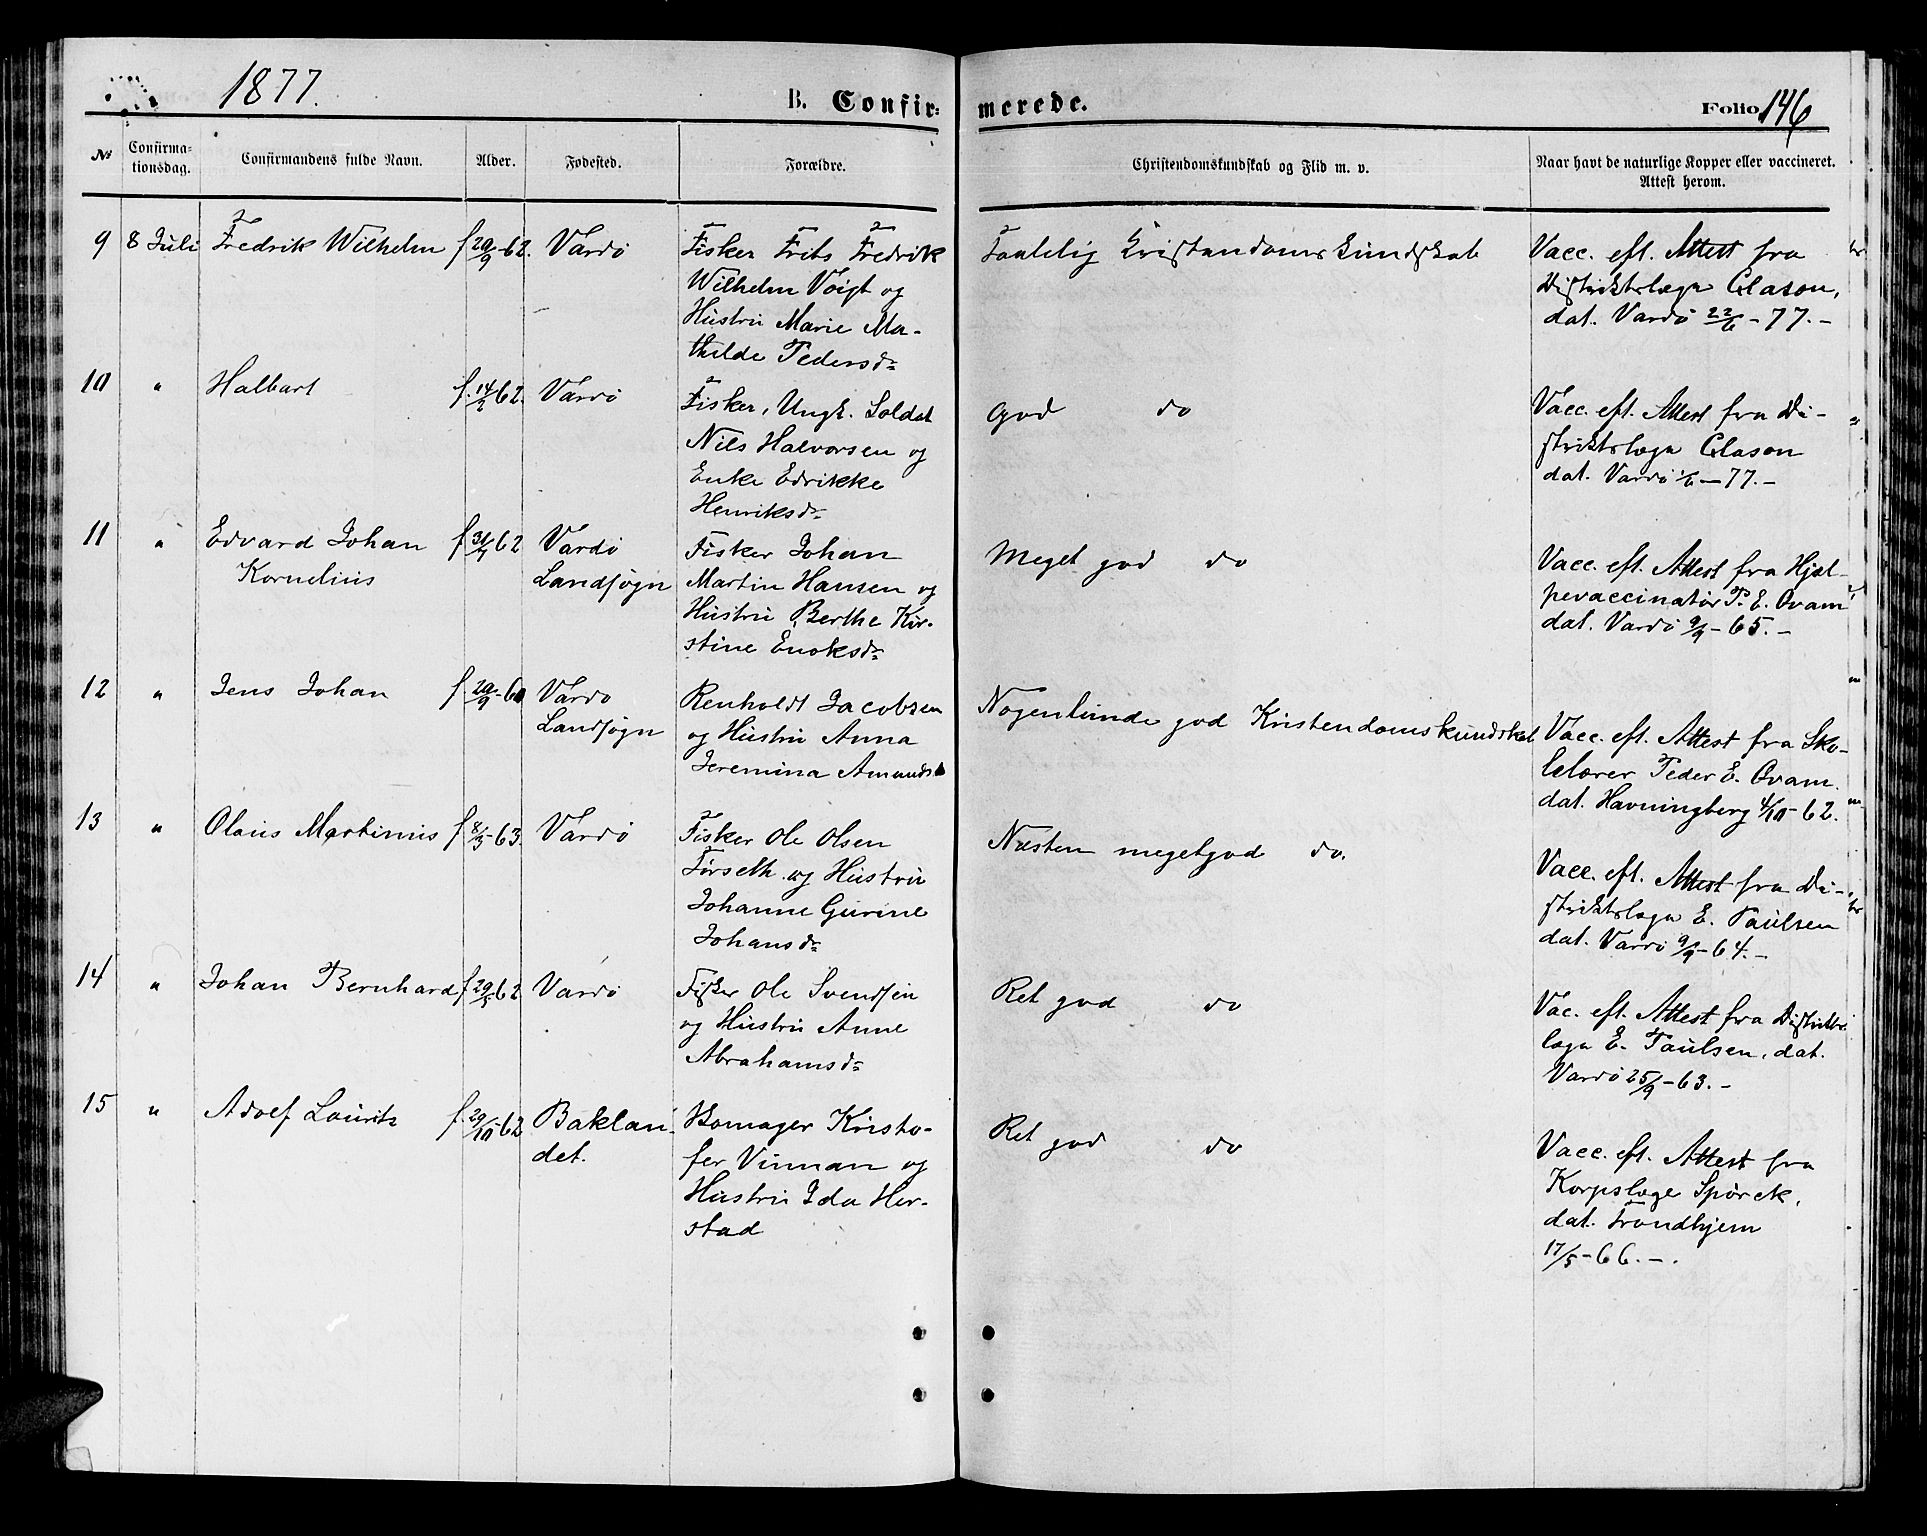 1877.
B. Confir= merede.
Folio 146
No
Confirma-
tionsdag.
Confirmandens fulde Navn.
Alder.
Fødested.
Forældre.
Christendomskundskab og Flid m. v.
Naar havt de naturlige Kopper eller vaccineret.
Attest herom.
9 8 Juli Fredrik Wilhelm f 29/9-62. Vardø
Fisker Frits Fredrik
Wilhelm Voigt og
Hustru Marie Ma-
thilde Pedersdr
Taalelig Kristendomskundskab
Vacc. eft. Attest fra
Distriktslæge Clason,
dat. Vardø 22/6-77.-
10 " Halbart f. 14/2 62. Vardø
Fisker, Ungk. Soldat
Nils Halvorsen og
Enke Edrikke
Henriksdr
God do
Vacc. eft. Attest fra Di-
striktslæge Clason
dat. Vardø 1/6-77.-
11 " Edvard Johan
Kornelius
f 31/7 62
Vardø
Landsøgn
Fisker Johan
Martin Hansen og
Hustru Berthe Kir-
stine Enoksdr
Meget god do
Vacc. eft. Attest fra Hjæl-
pevaccinatør P. E. Qvam
dat. Vardø 9/9-65.-
12 " Jens Johan f. 29/9-60
Vardø
Landsøgn
Renholdt Jacobsen
og Hustru Anna
Jeremina Amunds
Nogenlunde god Kristendomskundskab
Vacc. eft. Attest fra Sko-
lelærer Peder E. Qvam.
dat. Havningberg 4/10-62.
13 " Olaus Martinius f 8/3-63. Vardø
Fisker Ole Olsen
Førseth og Hustru
Johanne Gurine
Johansdr
Næsten megetgod do.
Vacc. eft. Attest fra Di-
striktslæge E. Paulsen
dat. Vardø 9/9-64.-
14 " Johan Bernhard f 29/5 62 Vardø
Fisker Ole Svendsen
og Hustru Anne
Abrahamsdr
Ret god do
Vac. eft. Attest fra Distrikts
læge E. Paulsen, dat.
Vardø 25/9-63.-
15 " Adolf Lauritz f. 29/10-62
Baklan-
det.
Bomager Kristo-
fer Vinnan og
Hustru Ida Her-
stad
Ret god do
Vacc. eft. Attest fra
Korpslæge Spørck,
dat. Trondhjem
17/5-66.-.